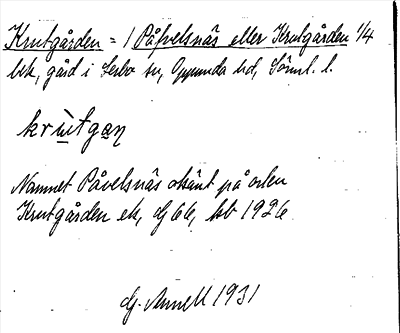 Krutgården = 1 Påfvelsnäs eller Krutgården 1/4
bsk, gård i Lerbo sn, Oppunda hd, Södml. l.
krùtgaɳ
Namnet Påvelsnäs okänt på orten
Krutgården ek, dj 66, kb 1926
G. Annell 1931